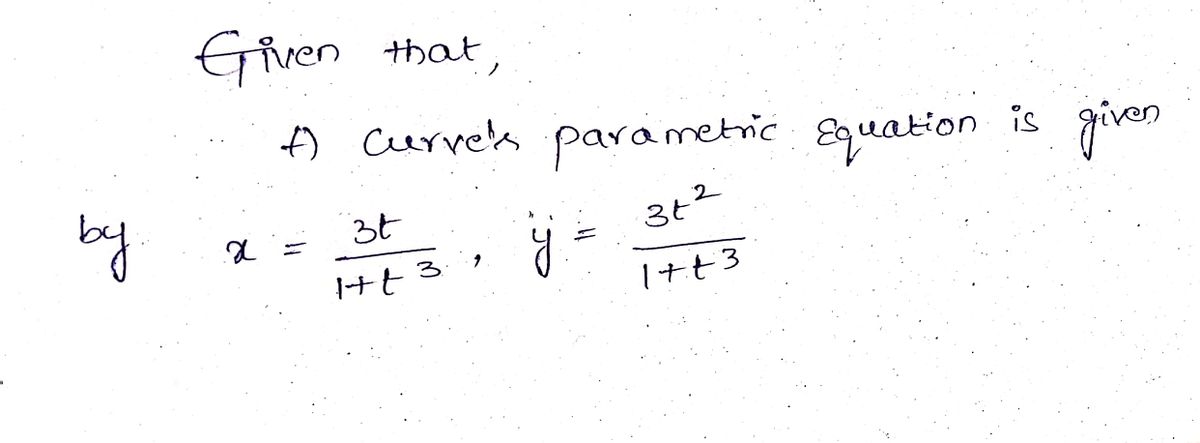 Given that,
A curve's parametric Equation is given
by x = 3t / 1+t^3 , y = 3t^2 / 1+t^3